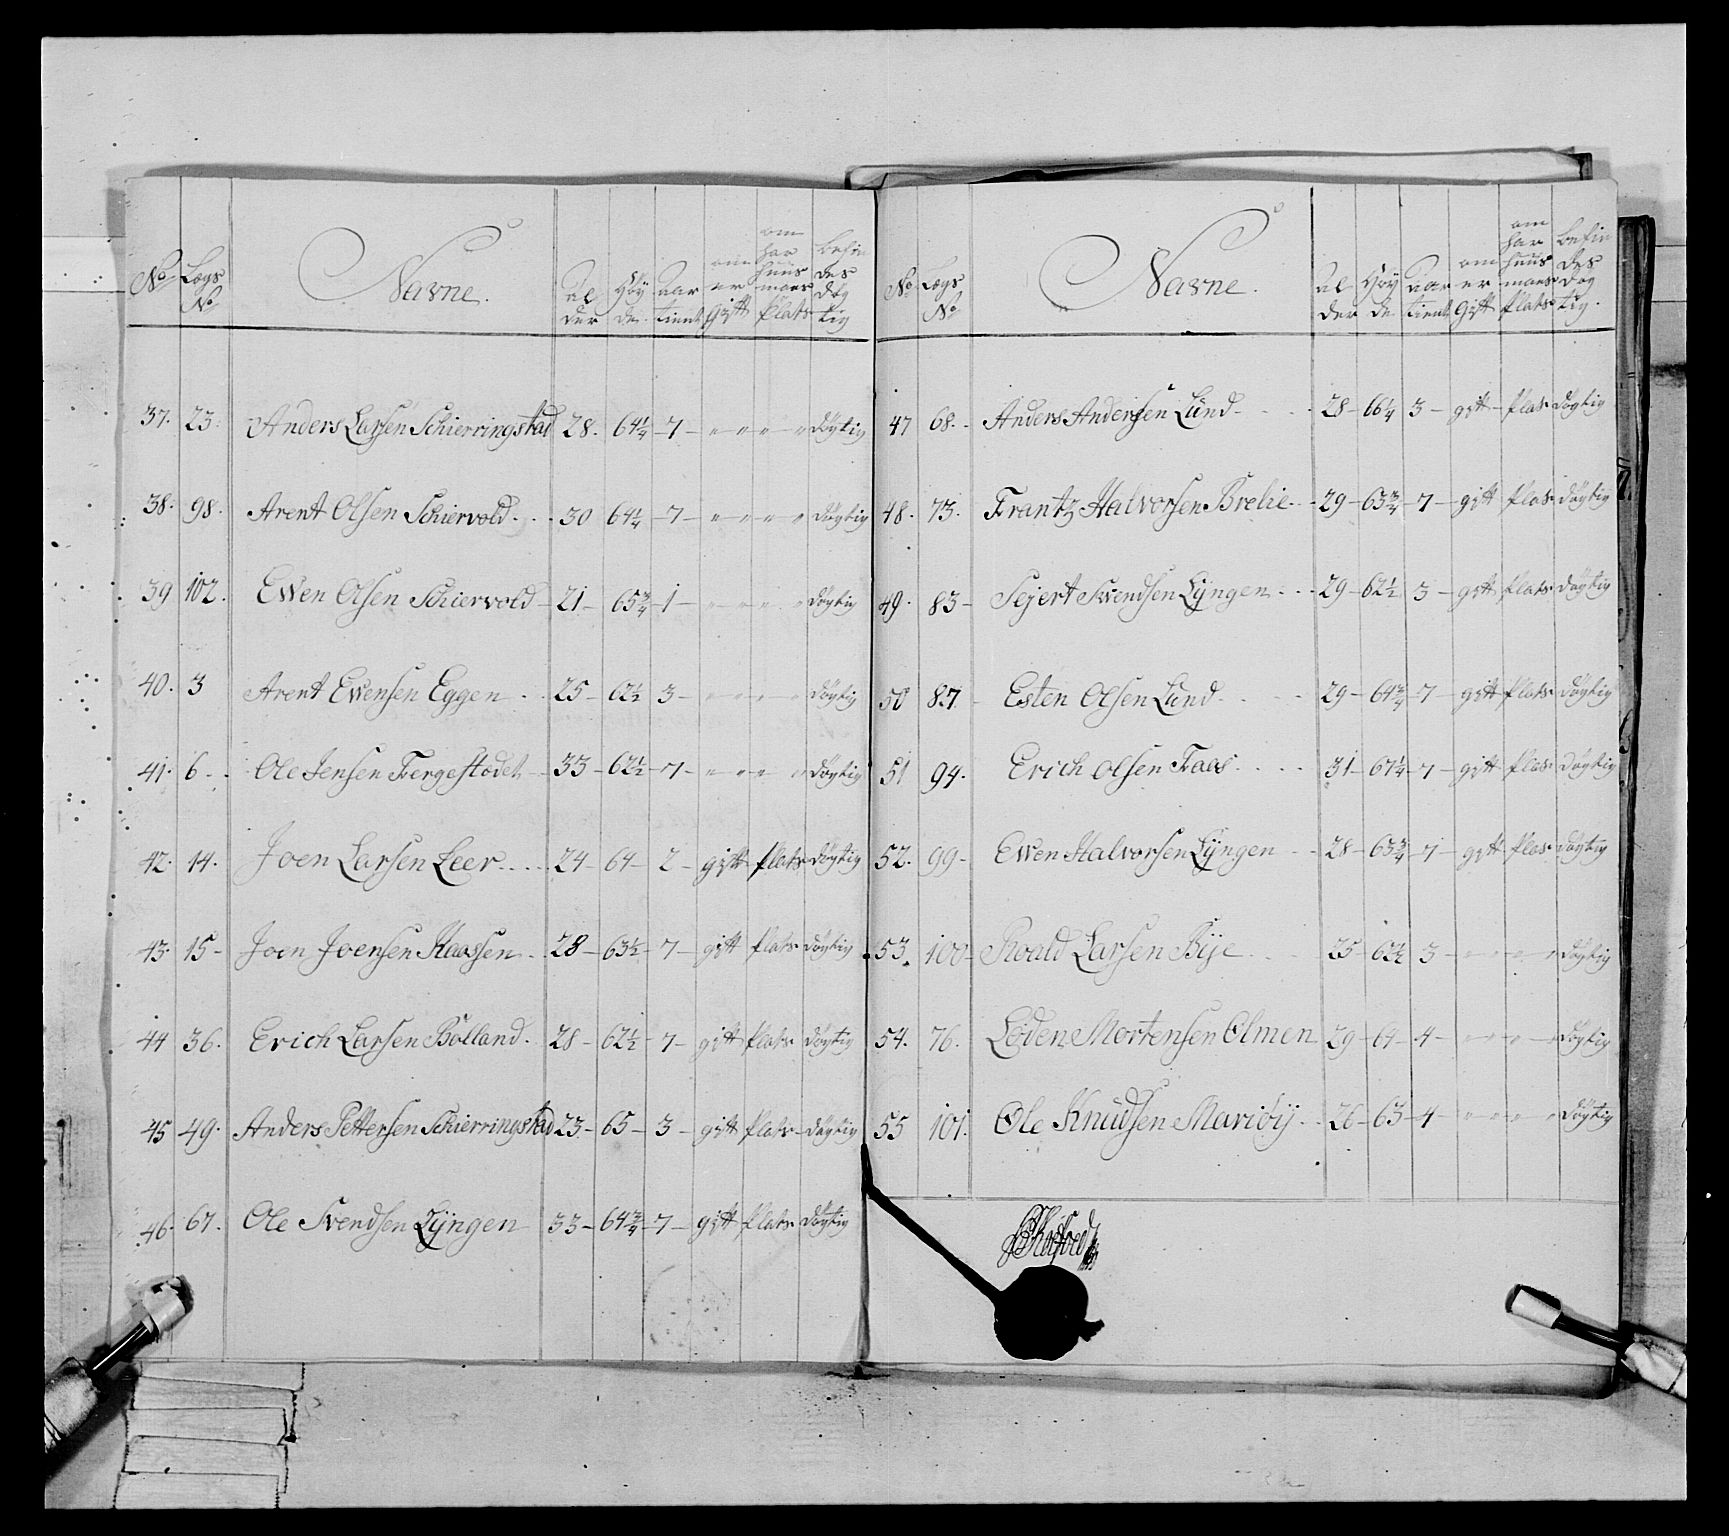 No Lægs No Navne. Al der Høy de. aar tient om er gift om har huus mans plats befin des døg tig
37. 23. Anders Larsen Schierringstad 28. 64¼ - 7 - " " " " døgtig
38. 98. Arent Olsen Schiervold. 30 64¼ - 7 - " " " " døgtig
39 102. Ewen Olsen Schiervold - 21 - 65¾ - 1 - " " " " døgtig
40. 3 Arent Ewensen Eggen 25 - 62½ 3 - " " " " døgtig
41. 6. Ole Jensen Fergestodet 33 - 62½ - 7 - " " " " døgtig
42. 14. Joen Larsen Leer 24 - 64 - 2 - gift plats døgtig
43. 15 - Joen Joensen Kaassen 28 - 63½ - 7 - gift plats døgtig
44 36. Erich Larsen Bolland. 28 - 62½ - 7 - gift plats døgtig
45 49. Anders Pettersen Schierringstad 23 - 65 - 3 - gift plats - døgtig
46. 67. Ole Svendsen Lÿngen 33 - 64¾ - 7 - gift plats døgtig
No Lægs No Navne. Al der Høy de aar tient om er Gift om har huus mans plats befin des døg tig.
47 68. Anders Andersen Lund 28 - 66¼ 3 - gift - plas døgtig
48. 73. Frantz Halvorsen Brelie 29 - 63¾ - 7 - gift plas døgtig
49. 83 - Sejert Svendsen Lÿngen 29 - 62½ 3 - gift plats døgtig
50 87. Esten Olsen Lund 29 - 64¾ - 7 - gift plats døgtig
51 94. Erich Olsen Faas 31 - 67¼ - 7 - gift plas døgtig
52. 99 - Ewen Halvorsen Lÿngen 28 - 63¾ - 7 - gift plas døgtig
53. 100 - Roald Larsen Bÿe 25 - 62½ 3 - " " " " døgtig
54. 76. Loden Mortensen Olmen 29 - 64 - 4 - " " " " døgtig
55 101. Ole Knudsen Mariöÿ 26 - 63 - 4 - " " " " døgtig